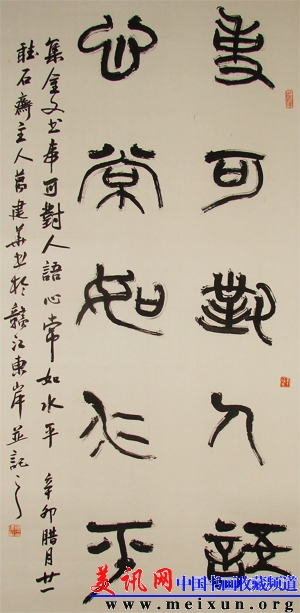 事可對人語
心常如水平
集金文书事可對人語心常如水平 辛卯腊月廿一
石齋主人建華书於贛江東岸並記之
美讯网 中国书画收藏频道
www.meixun.org